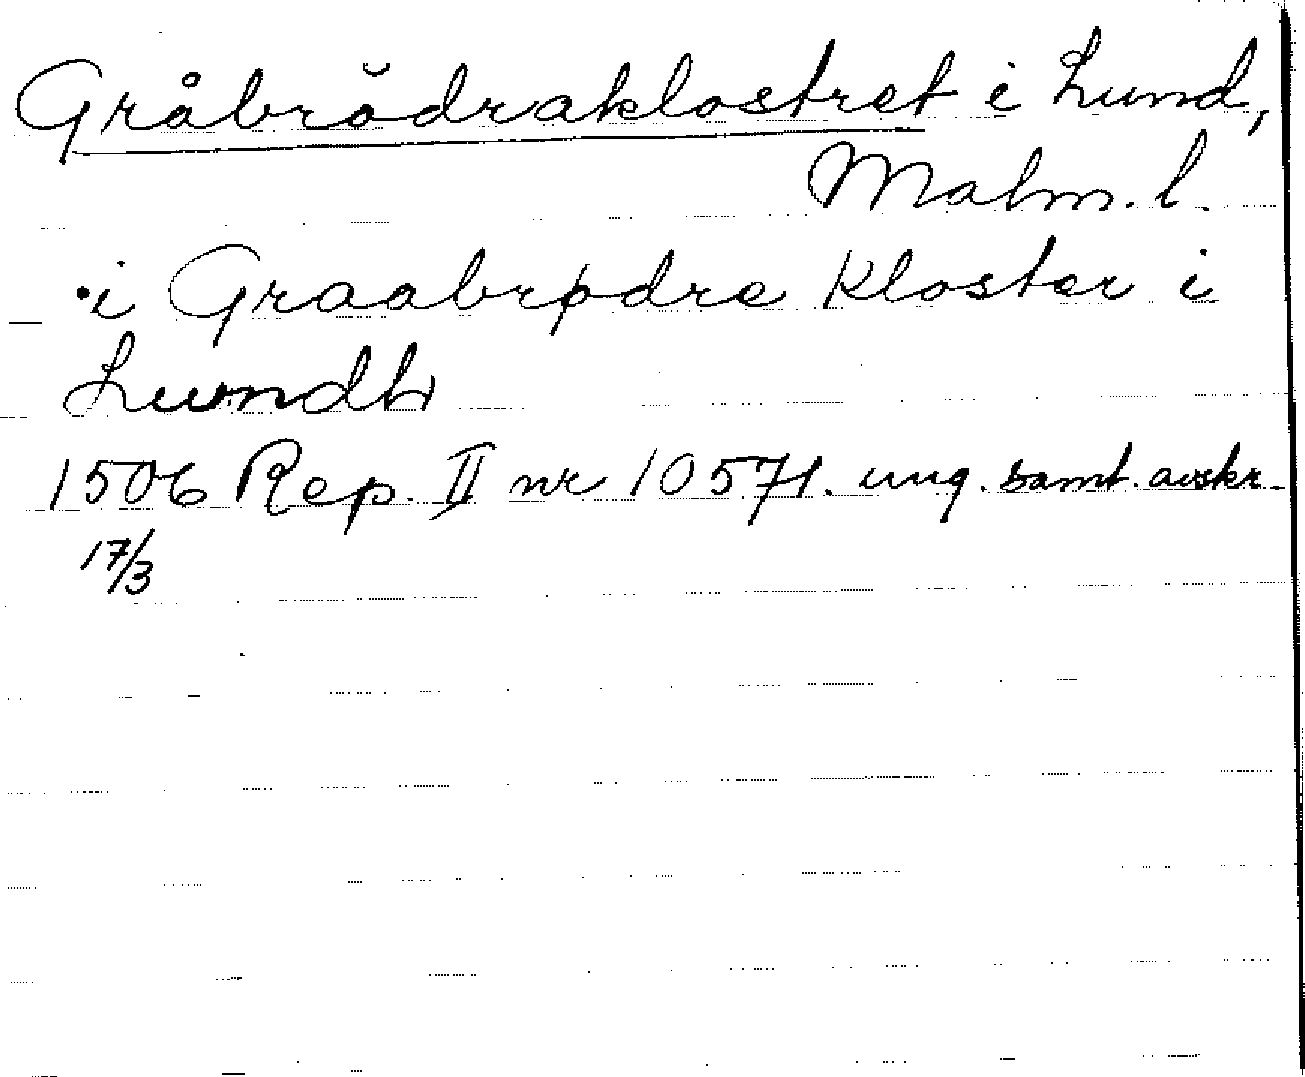 Gråbrödraklostret i Lund,
Malm. l.
·i Graabrødre Kloster i
Lundh
1506 Rep. II nr 10571. ung. samt. avskr.
17/3